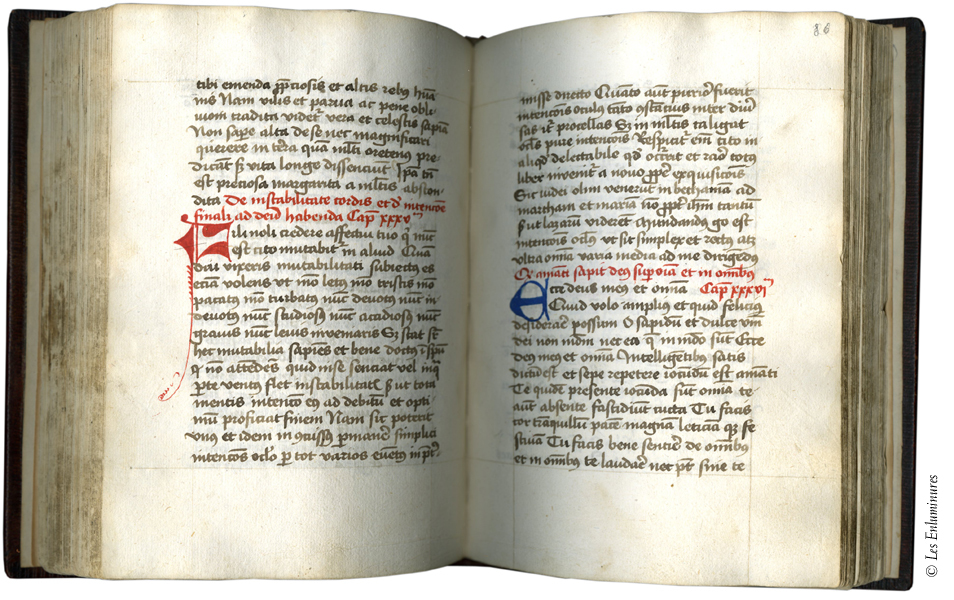 tibi emenda p̄ciosis et altis rebꝰ hūa
nis Nam vilis et parua ac pene obli
uioni tradita videtʳ vera et celestis sapiā
Non saꝑe alta de se nec magnificari
querere in terra quā mlti oretenus pre
dicāt sꝫ vita longe dissenciūt Ipā tn̄
est preciosa margarita a mltis abscon
dita De instabilitate cordis et de intencōe
finali ad deū habenda Cap xxxv
Fili noli credere affectui tuo qͥ nūc
est cito mutabitʳ in aliud Quā
diu vixeris mutabilitati subiectꝰ es
eciā volens vt mō letꝰ mō tristis mō
pacatꝰ mō turbatꝰ nūc deuotꝰ nūc in
deuotꝰ nūc studiosꝰ nūc acidiosꝰ nūc
grauis nūc leuis inuenaris Sꝫ stat suꝑ
hec mutabilia sapiēs et bene doctꝰ ī spū
nō attēdēs quid in se senciat vel in qͣ
ꝑte ventꝰ flet instabilitatꝭ sꝫ vt tota
mentis intencō eꝰ ad debitū et opti
mū proficiat finem Nam sic poterit
vnus et idem incōcussꝰ ꝑmanere simplici
intencōis oclo ꝑ tot varios euētꝰ in ꝑte
86
misse directo Quāto aūt purior fuerit
intencōis oculꝰ tāto ꝯstācius inter diuer
sas itʳ procellas Sꝫ in mltis caligat
oclꝰ pure intencōis Respicitʳ em̄ cito in
aliqd delectabile qd occrit et raro totꝰ
liber inuenitʳ a neuo p̄prie exquisicōis
Sic iudei olim venerūt in bethaniā ad
martham et mariā nō ꝓptʳ ihm̄ tantū
sꝫ vt lazarū viderēt Mundandꝰ ḡo est
intencōis oclꝰ vt sit simplex et rectꝰ atꝫ
vltra omīa varia media ad me dirigēdꝰ
Qͩ amāti sapit deꝰ suꝑ oīa et in omībꝰ
Ecce deus meꝰ et omīa Cap xxxvi
Quid volo ampliꝰ et quid feliciꝰ
desiderare possum O sapidū et dulce vm̄
dei non mdm nec ea qͥ in mdo sūt Ecce
deꝰ meꝰ et omīa Intelligētibꝰ satis
dictū est et sepe repetere iocūdū est amāti
Te quidē presente iocūda sūt omīa te
aūt absente fastidiūt cūcta Tu facis
cor tranqͥllū pacē magnā leticiā qꝫ fe
stiuā Tu facis bene sentire de omībꝰ
et in omībꝰ te laudare nec pōt sine te
© Les Enluminures